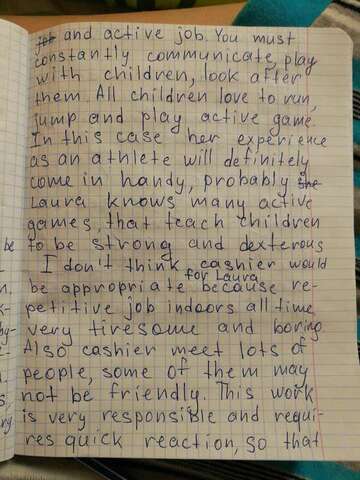 and active job. You must
constantly communicate, play
with children, look after
them. All children love to run,
jump and play active game.
In this case her experience
as an athlete will definitely
come in handy, probably she
Laura knows many active
games, that teach children
to be strong and dexterous
I don't think cashier would
for Laura
be appropriate because re-
petitive job indoors all time
very tiresome and boring.
Also cashier meet lots of
people, some of them may
not be friendly. This work
is very responsible and requi-
res quick reaction, so that
be